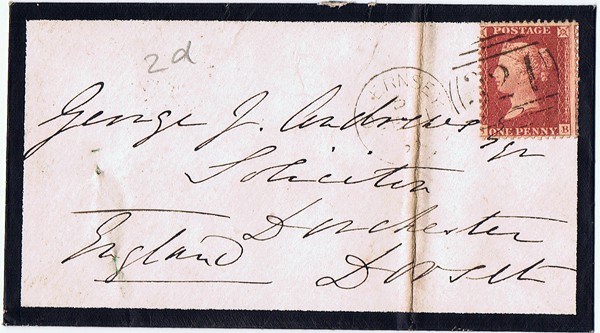 POSTAGE
2d
321
ONE PENNY
B
George J. Andrews Esqr
Solicitor
Dorchester
England
Dorset